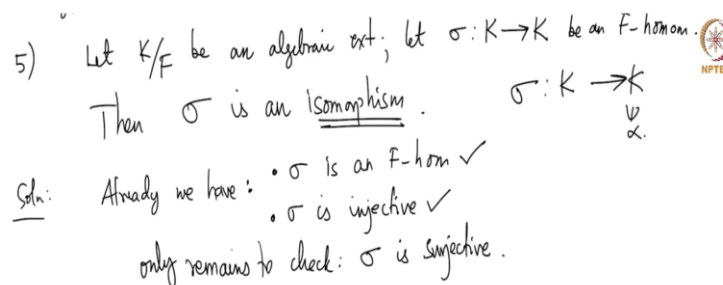 5) Let K/F be an algebraic ext; let σ: K→K be an F-homom.
Then σ is an isomorphism.
σ: K → K
∪
α.
Soln: Already we have: • σ is an F-hom ✓
• σ is injective ✓
only remains to check: σ is surjective.
NPTE